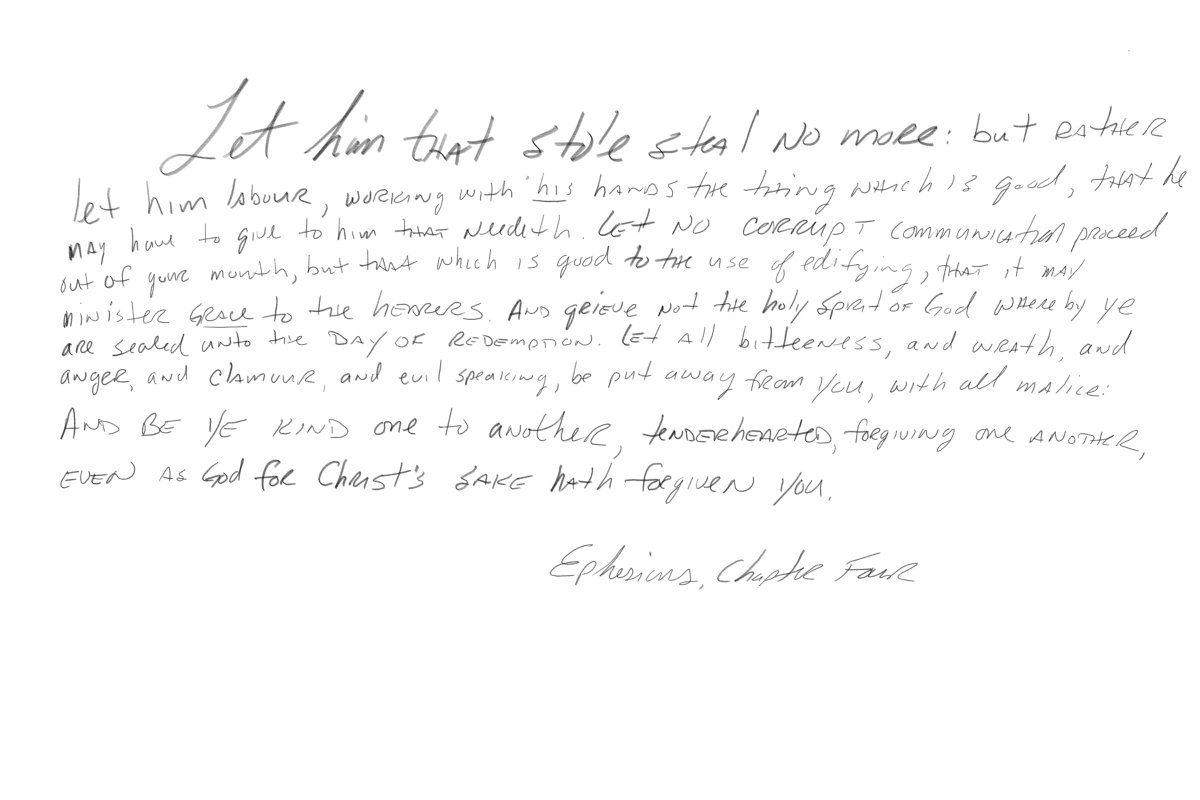 Let him that stole steal no more: but rather
let him labour, working with his hands the thing which is good, that he
may have to give to him that needeth. Let no corrupt communication proceed
out of your mouth, but that which is good to the use of edifying, that it may
minister grace to the hearers. And grieve not the holy Spirit of God whereby ye
are sealed unto the day of redemption. Let all bitterness, and wrath, and
anger, and clamour, and evil speaking, be put away from you, with all malice:
And be ye kind one to another, tenderhearted, forgiving one another,
even as God for Christ's sake hath forgiven you.
Ephesians, Chapter Four